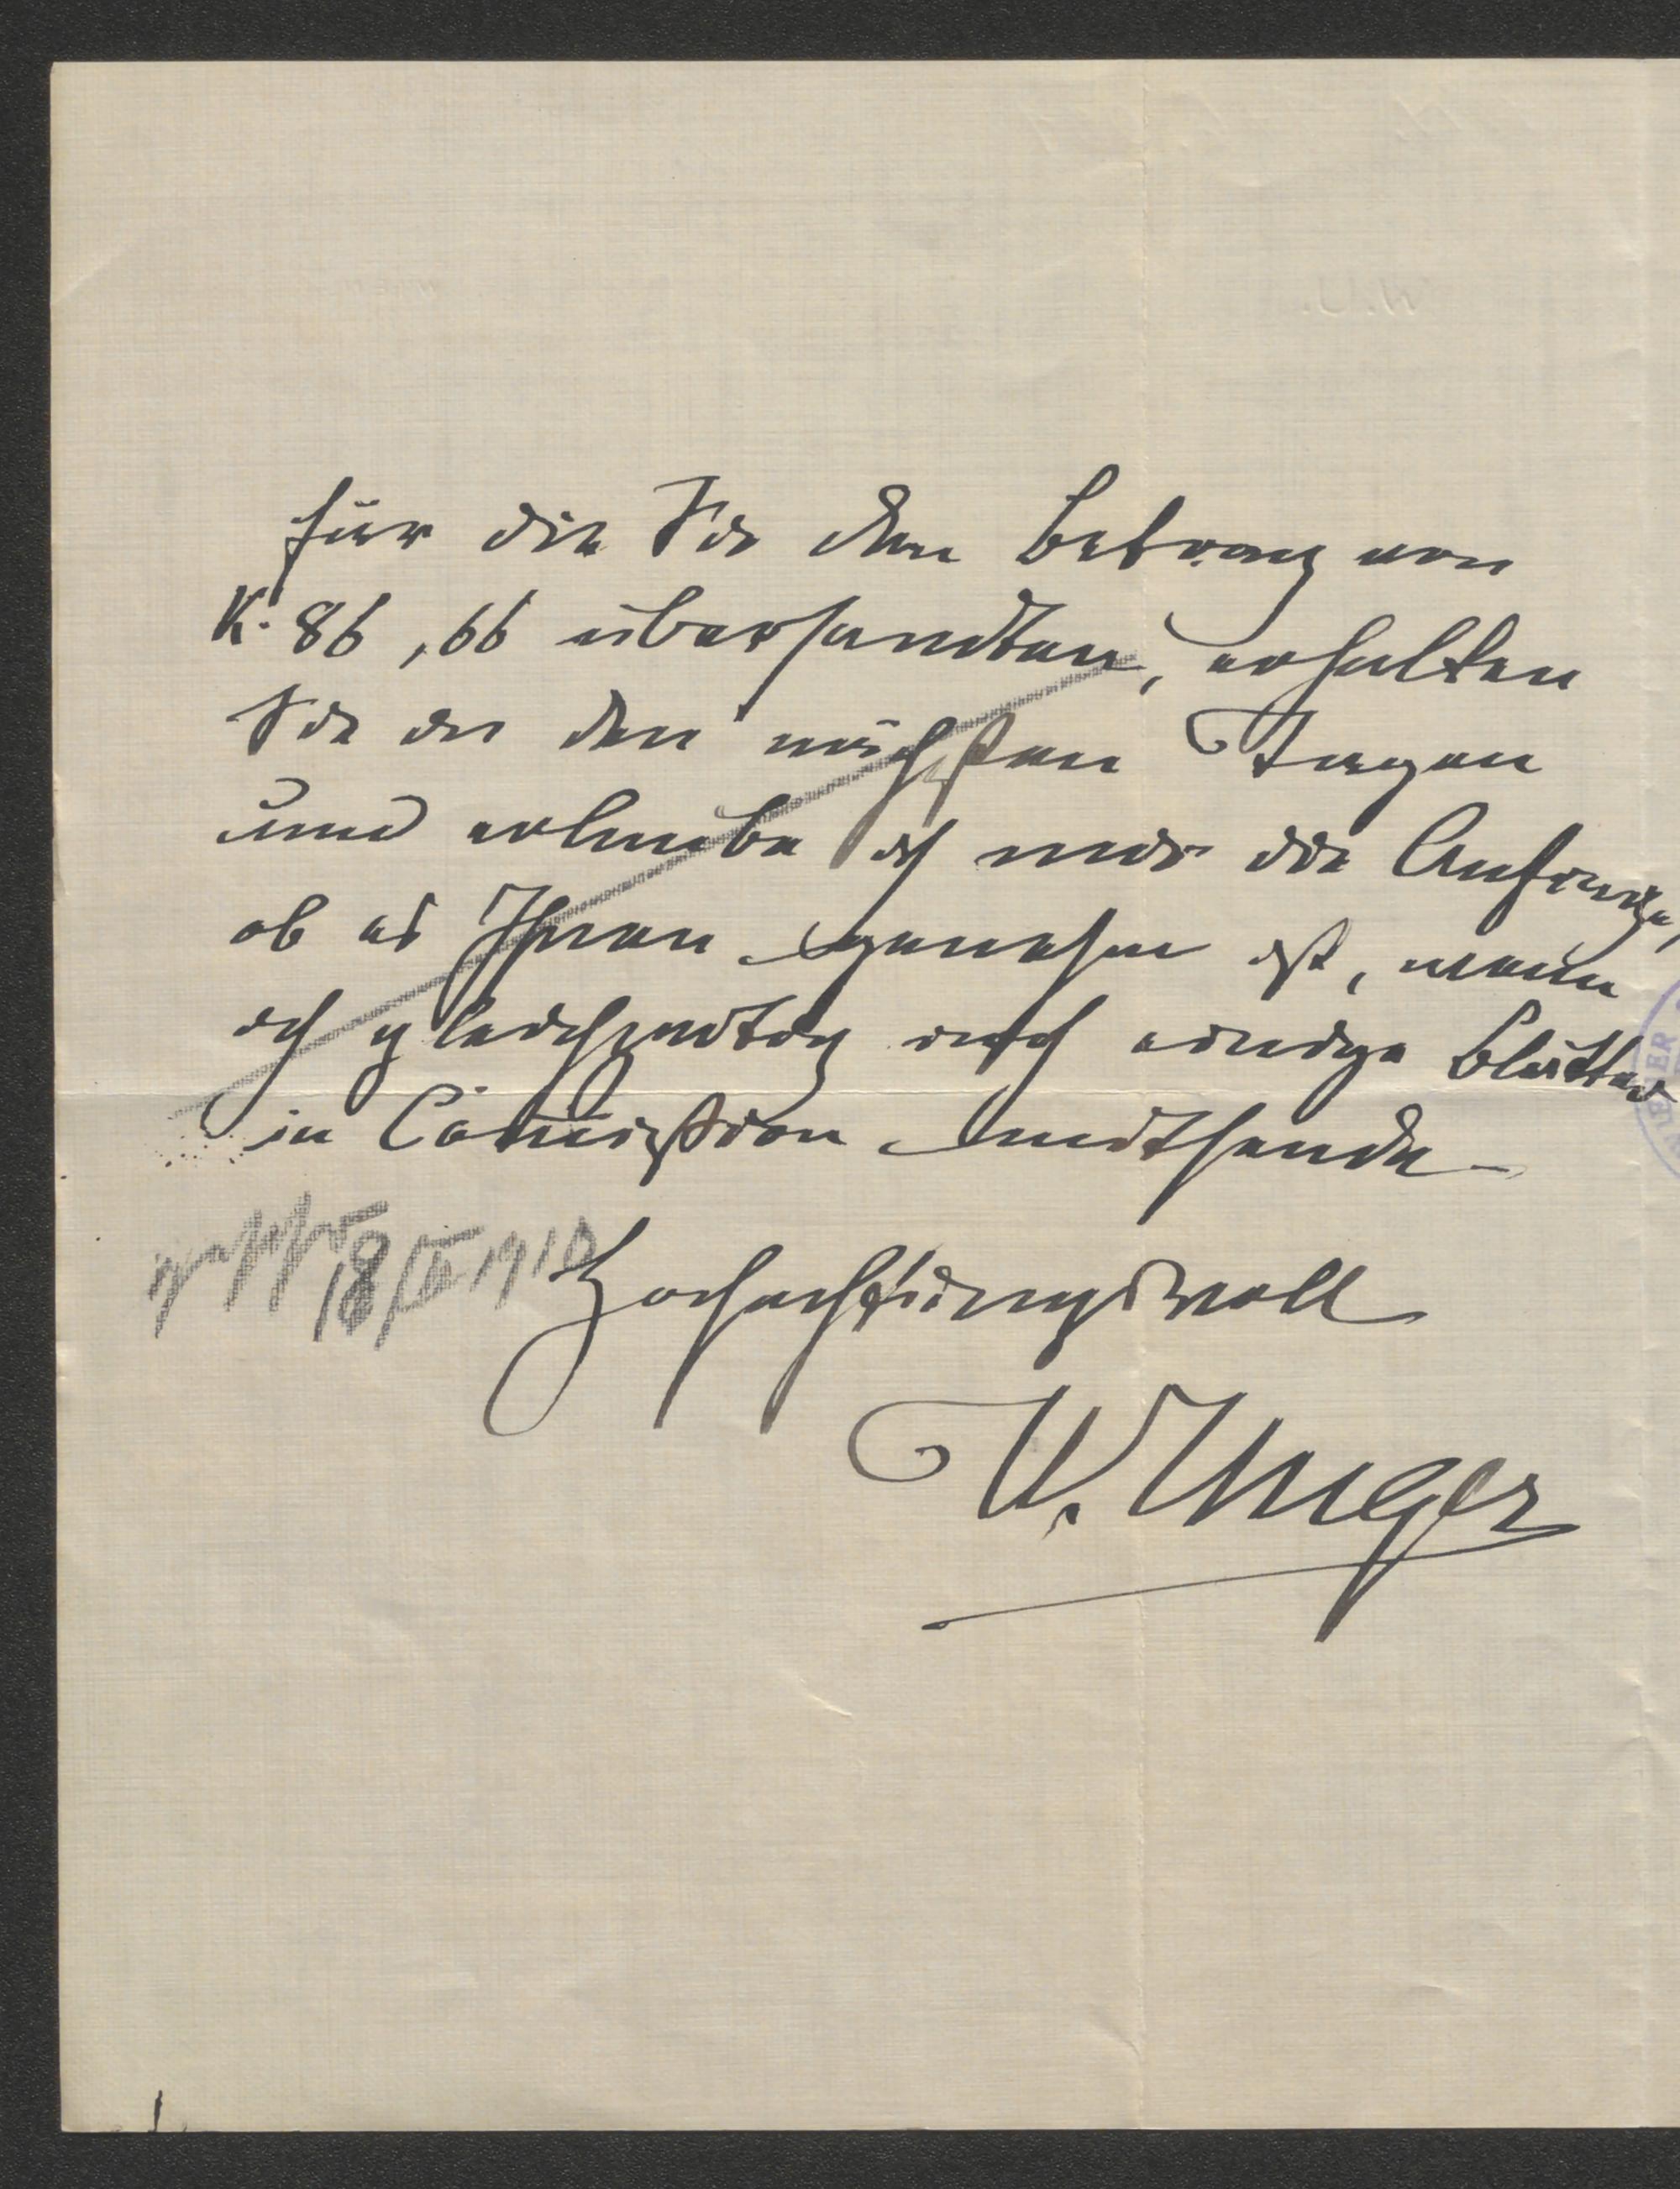 für die Sie den Betrag von
K. 86,66 übersandten, erhalten
Sie in den nächsten Tagen
und erlaube ich mir die Anfrage,
ob es Ihnen genehm ist, wenn
ich gleichzeitig noch einige Blätter
in Com̄ission mitsende
18/III 1910
Hochachtungsvoll
W. Unger
W.U.